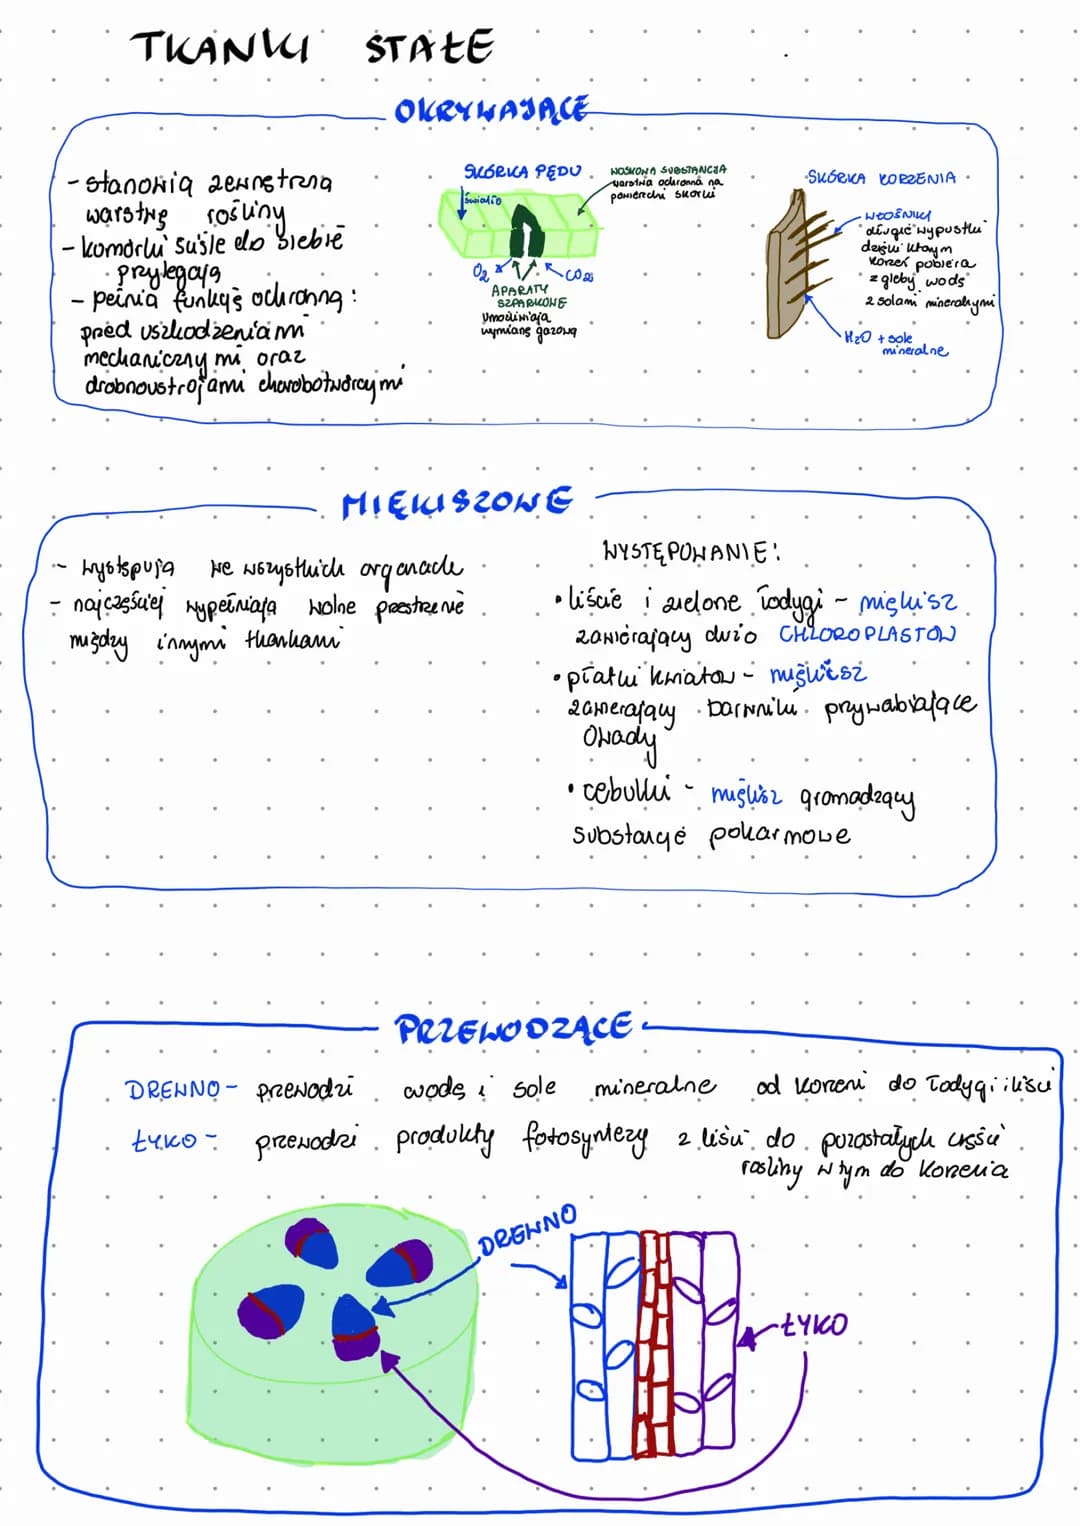 TKANKI STAŁE
OKRYWAJĄCE
- stanowią zewnętrzną
warstwę rośliny
- komórki ściśle do siebie
przylegają
- pełnią funkcję ochronną:
przed uszkodzeniami
mechanicznymi oraz
drobnoustrojami chorobotwórczymi
SKÓRKA PĘDU
światło
WOSKOWA SUBSTANCJA
warstwa ochronna na
powierzchni skórki
O₂
CO₂
APARATY
SZPARKOWE
umożliwiają
wymianę gazową
SKÓRKA KORZENIA
WŁOŚNIKI
długie wypustki
dzięki którym
korzeń pobiera
z gleby wodę
z solami mineralnymi
H₂O + sole
mineralne
MIĘKISZOWE
- występują we wszystkich organach
- najczęściej wypełniają wolne przestrzenie
między innymi tkankami
WYSTĘPOWANIE:
• liście i zielone łodygi - miękisz
zawierający dużo CHLOROPLASTÓW
• płatki kwiatów - miękisz
zawierający barwniki przywabiające
owady
• cebulki - miękisz gromadzący
substancje pokarmowe
PRZEWODZĄCE
DREWNO - przewodzi wodę i sole mineralne od korzeni do łodygi i liści
ŁYKO - przewodzi produkty fotosyntezy z liści do pozostałych części
rośliny w tym do korzenia
DREWNO
ŁYKO